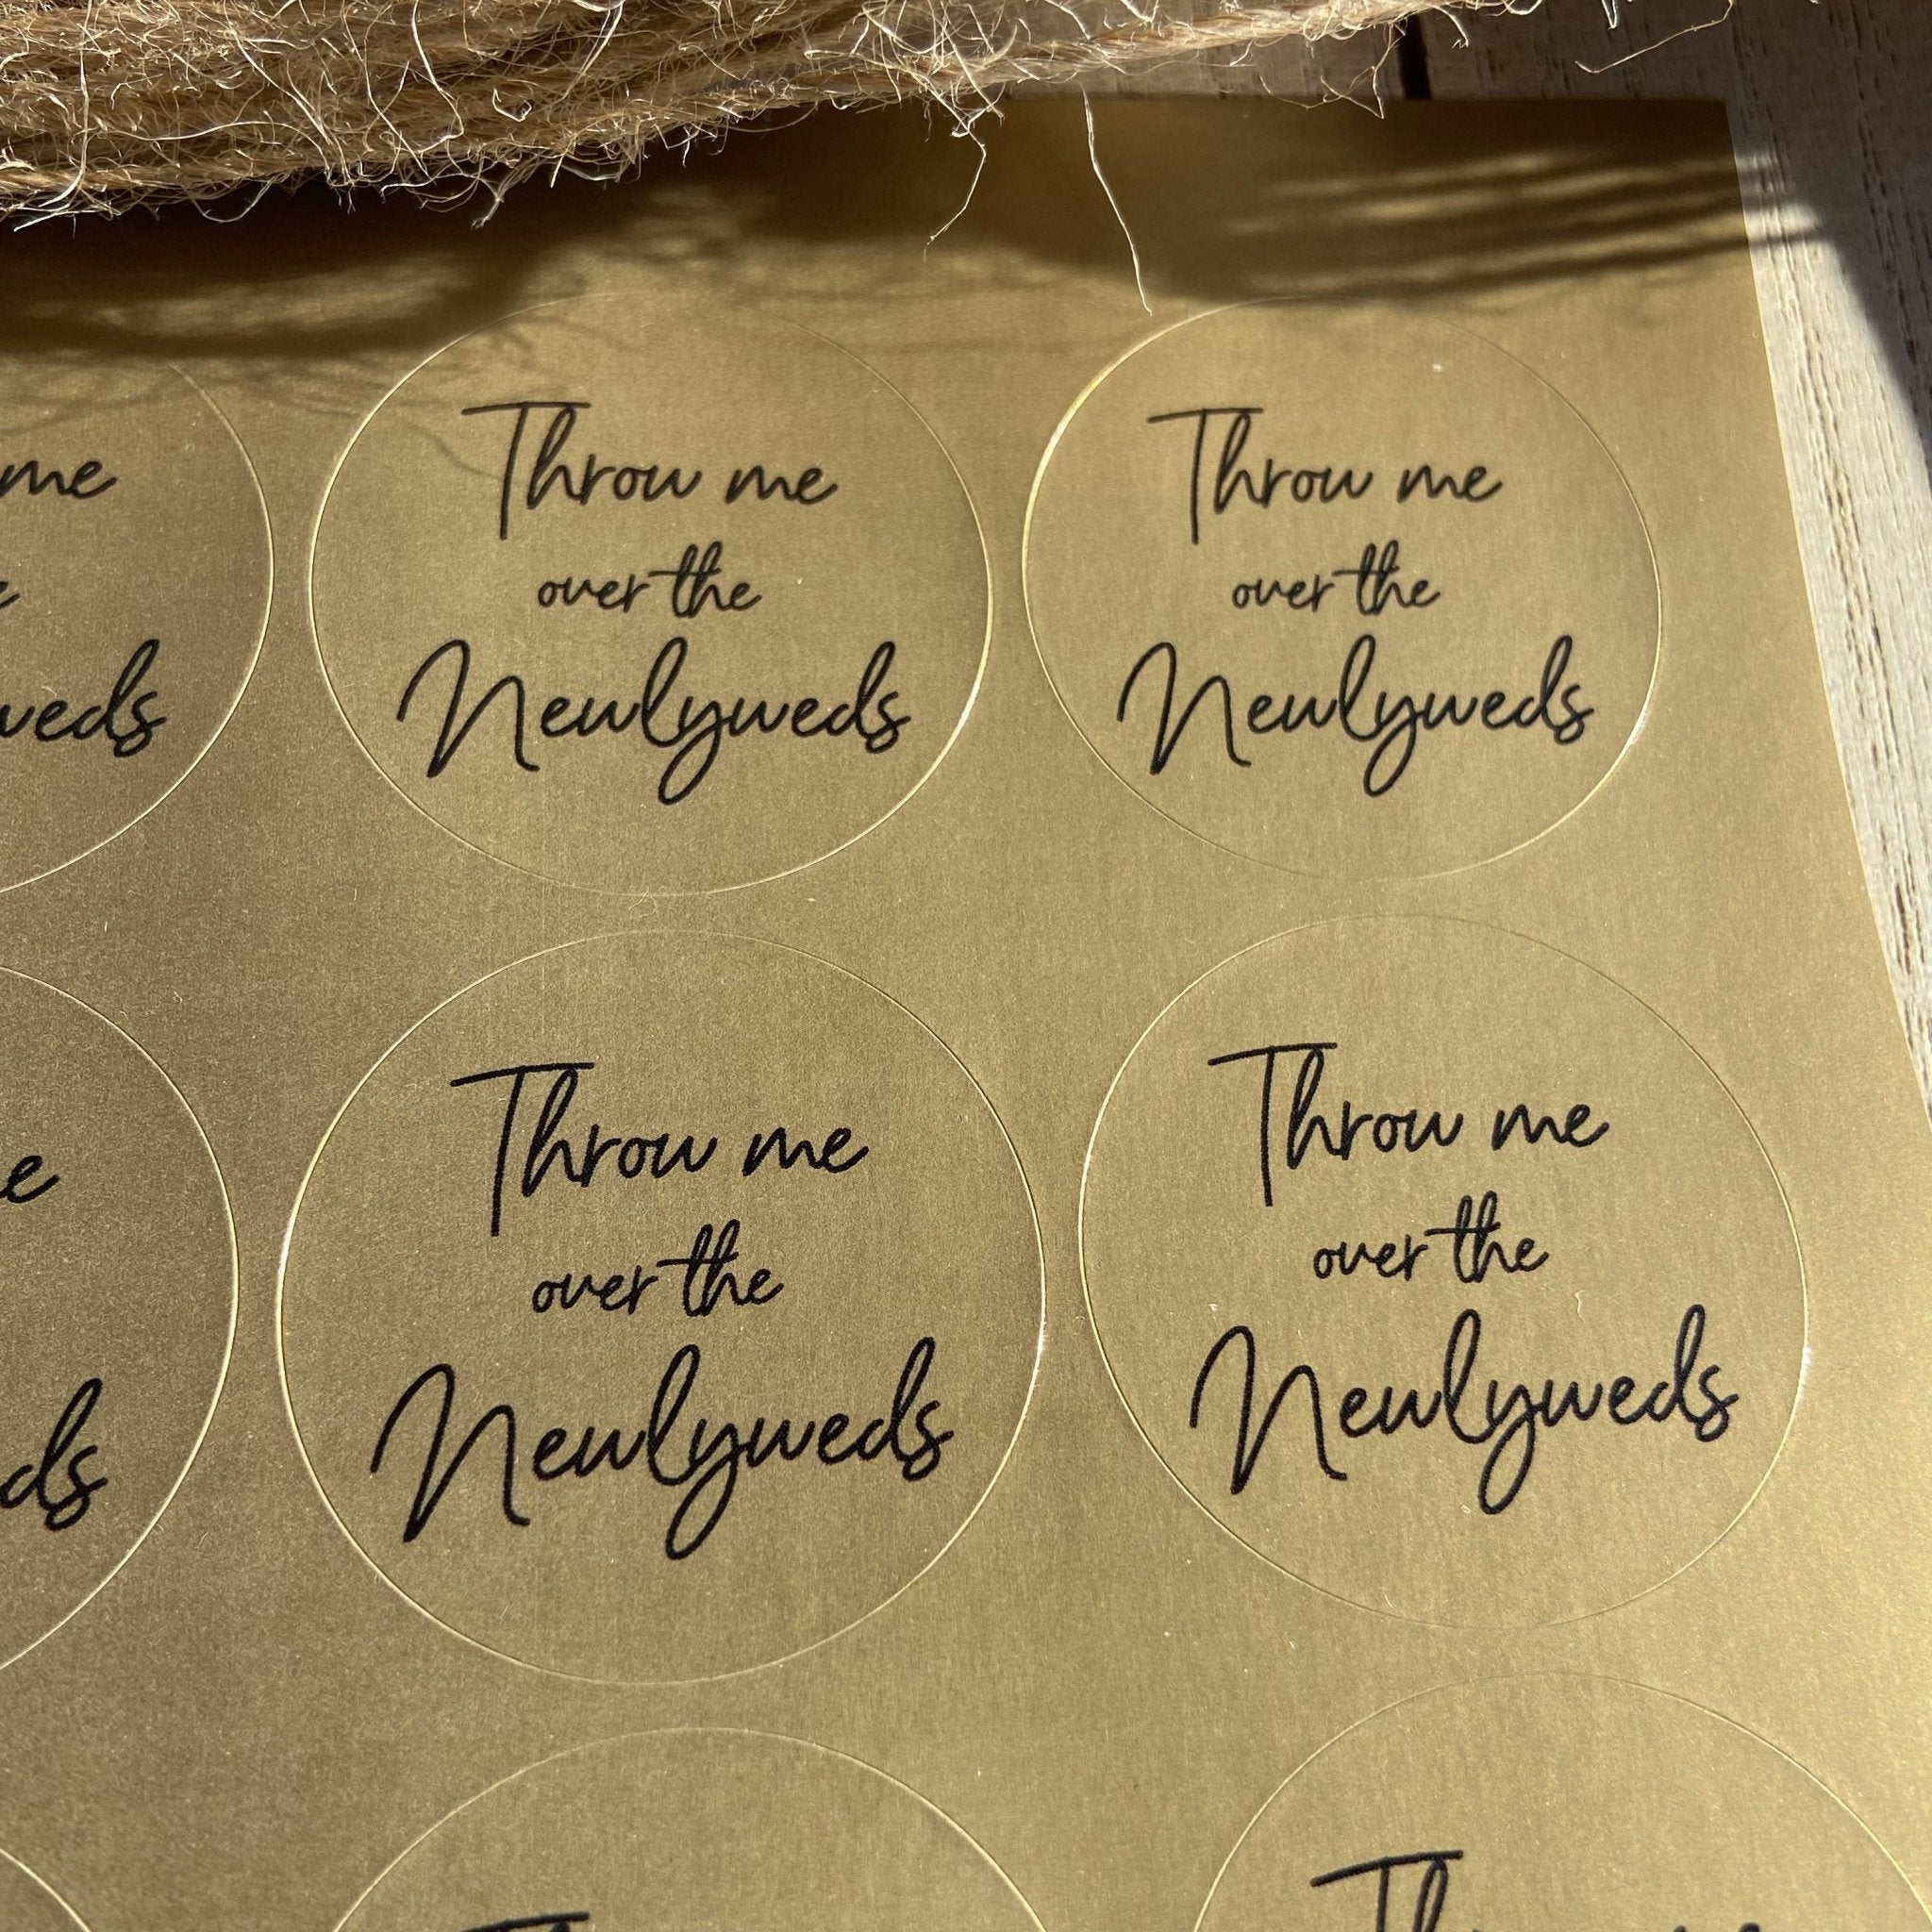 me
weds
Throw me
over the
Newlyweds
Throw me
over the
Newlyweds
ds
Throw me
over the
Newlyweds
Throw me
over the
Newlyweds